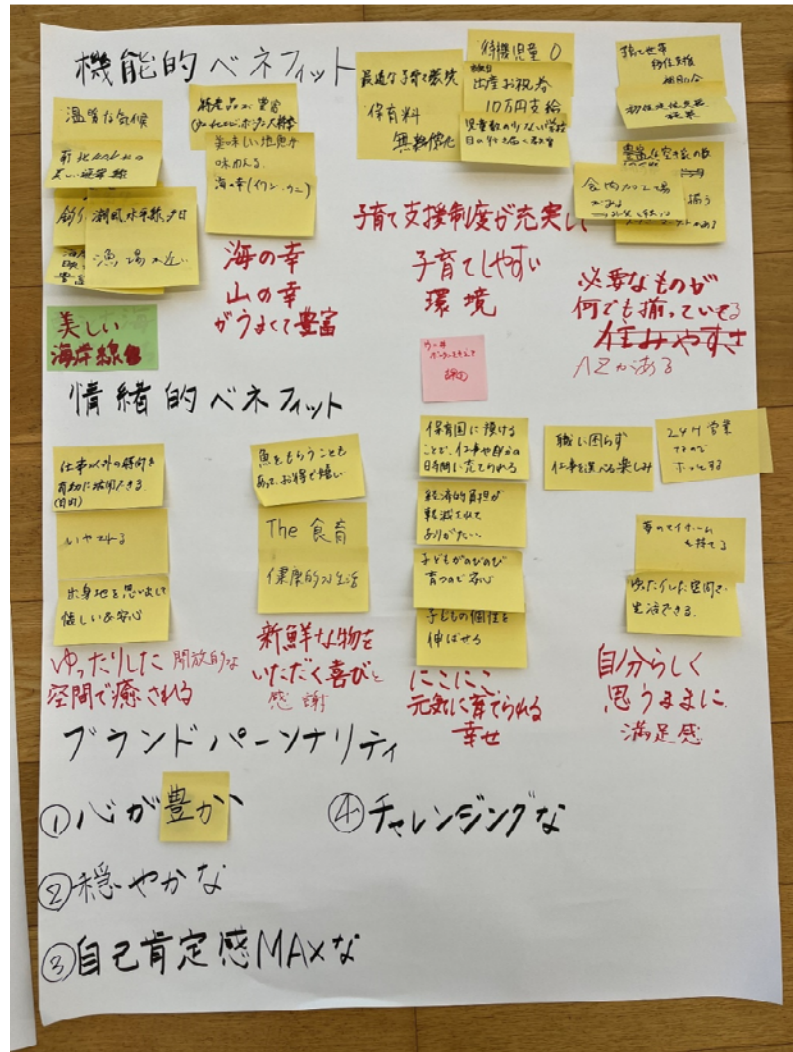 機能的ベネフィット
温暖な気候
美しい海岸線
釣り
潮風 水平線 夕日
漁場が近い
美しい
海岸線
特産品が豊富
美味しい地魚が
味わえる
海の幸
海の幸
山の幸
がうまくて豊富
最適な子育て環境
保育料
無償化
待機児童 0
出産お祝券
10万円支給
児童数の少ない学校
目の行き届く教育
子育て支援制度が充実して
子育てしやすい
環境
子育て世帯
移住支援
補助金
食肉加工場
がある
揃う
必要なものが
何でも揃っている
住みやすさ
AZがある
情緒的ベネフィット
仕事以外の時間を
有効に活用できる
いやされる
出身地を思い出して
嬉しい&安心
ゆったりした 開放的な
空間で癒される
魚をもらうことも
あって、お得で嬉しい
The 食育
健康的な生活
新鮮な物を
いただく喜びと
感謝
保育園に預ける
ことで、仕事や自分の
時間に充てられる
経済的負担が
軽減されて
ありがたい…
子どもがのびのび
育つので安心
子どもの個性を
伸ばせる
にこにこ
元気に育てられる
幸せ
職に困らず
仕事を選べる楽しみ
24h営業
なので
ホッとする
夢のマイホーム
を持てる
ゆったりした空間で
生活できる
自分らしく
思うままに
満足感
ブランドパーソナリティ
①心が豊か
②穏やかな
③自己肯定感MAXな
④チャレンジングな